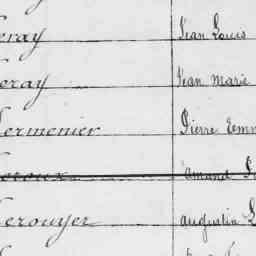 eray Jean Louis
eray Jean Marie
ermenier Pierre Emm
eroux Amand
erouyer Augustin L